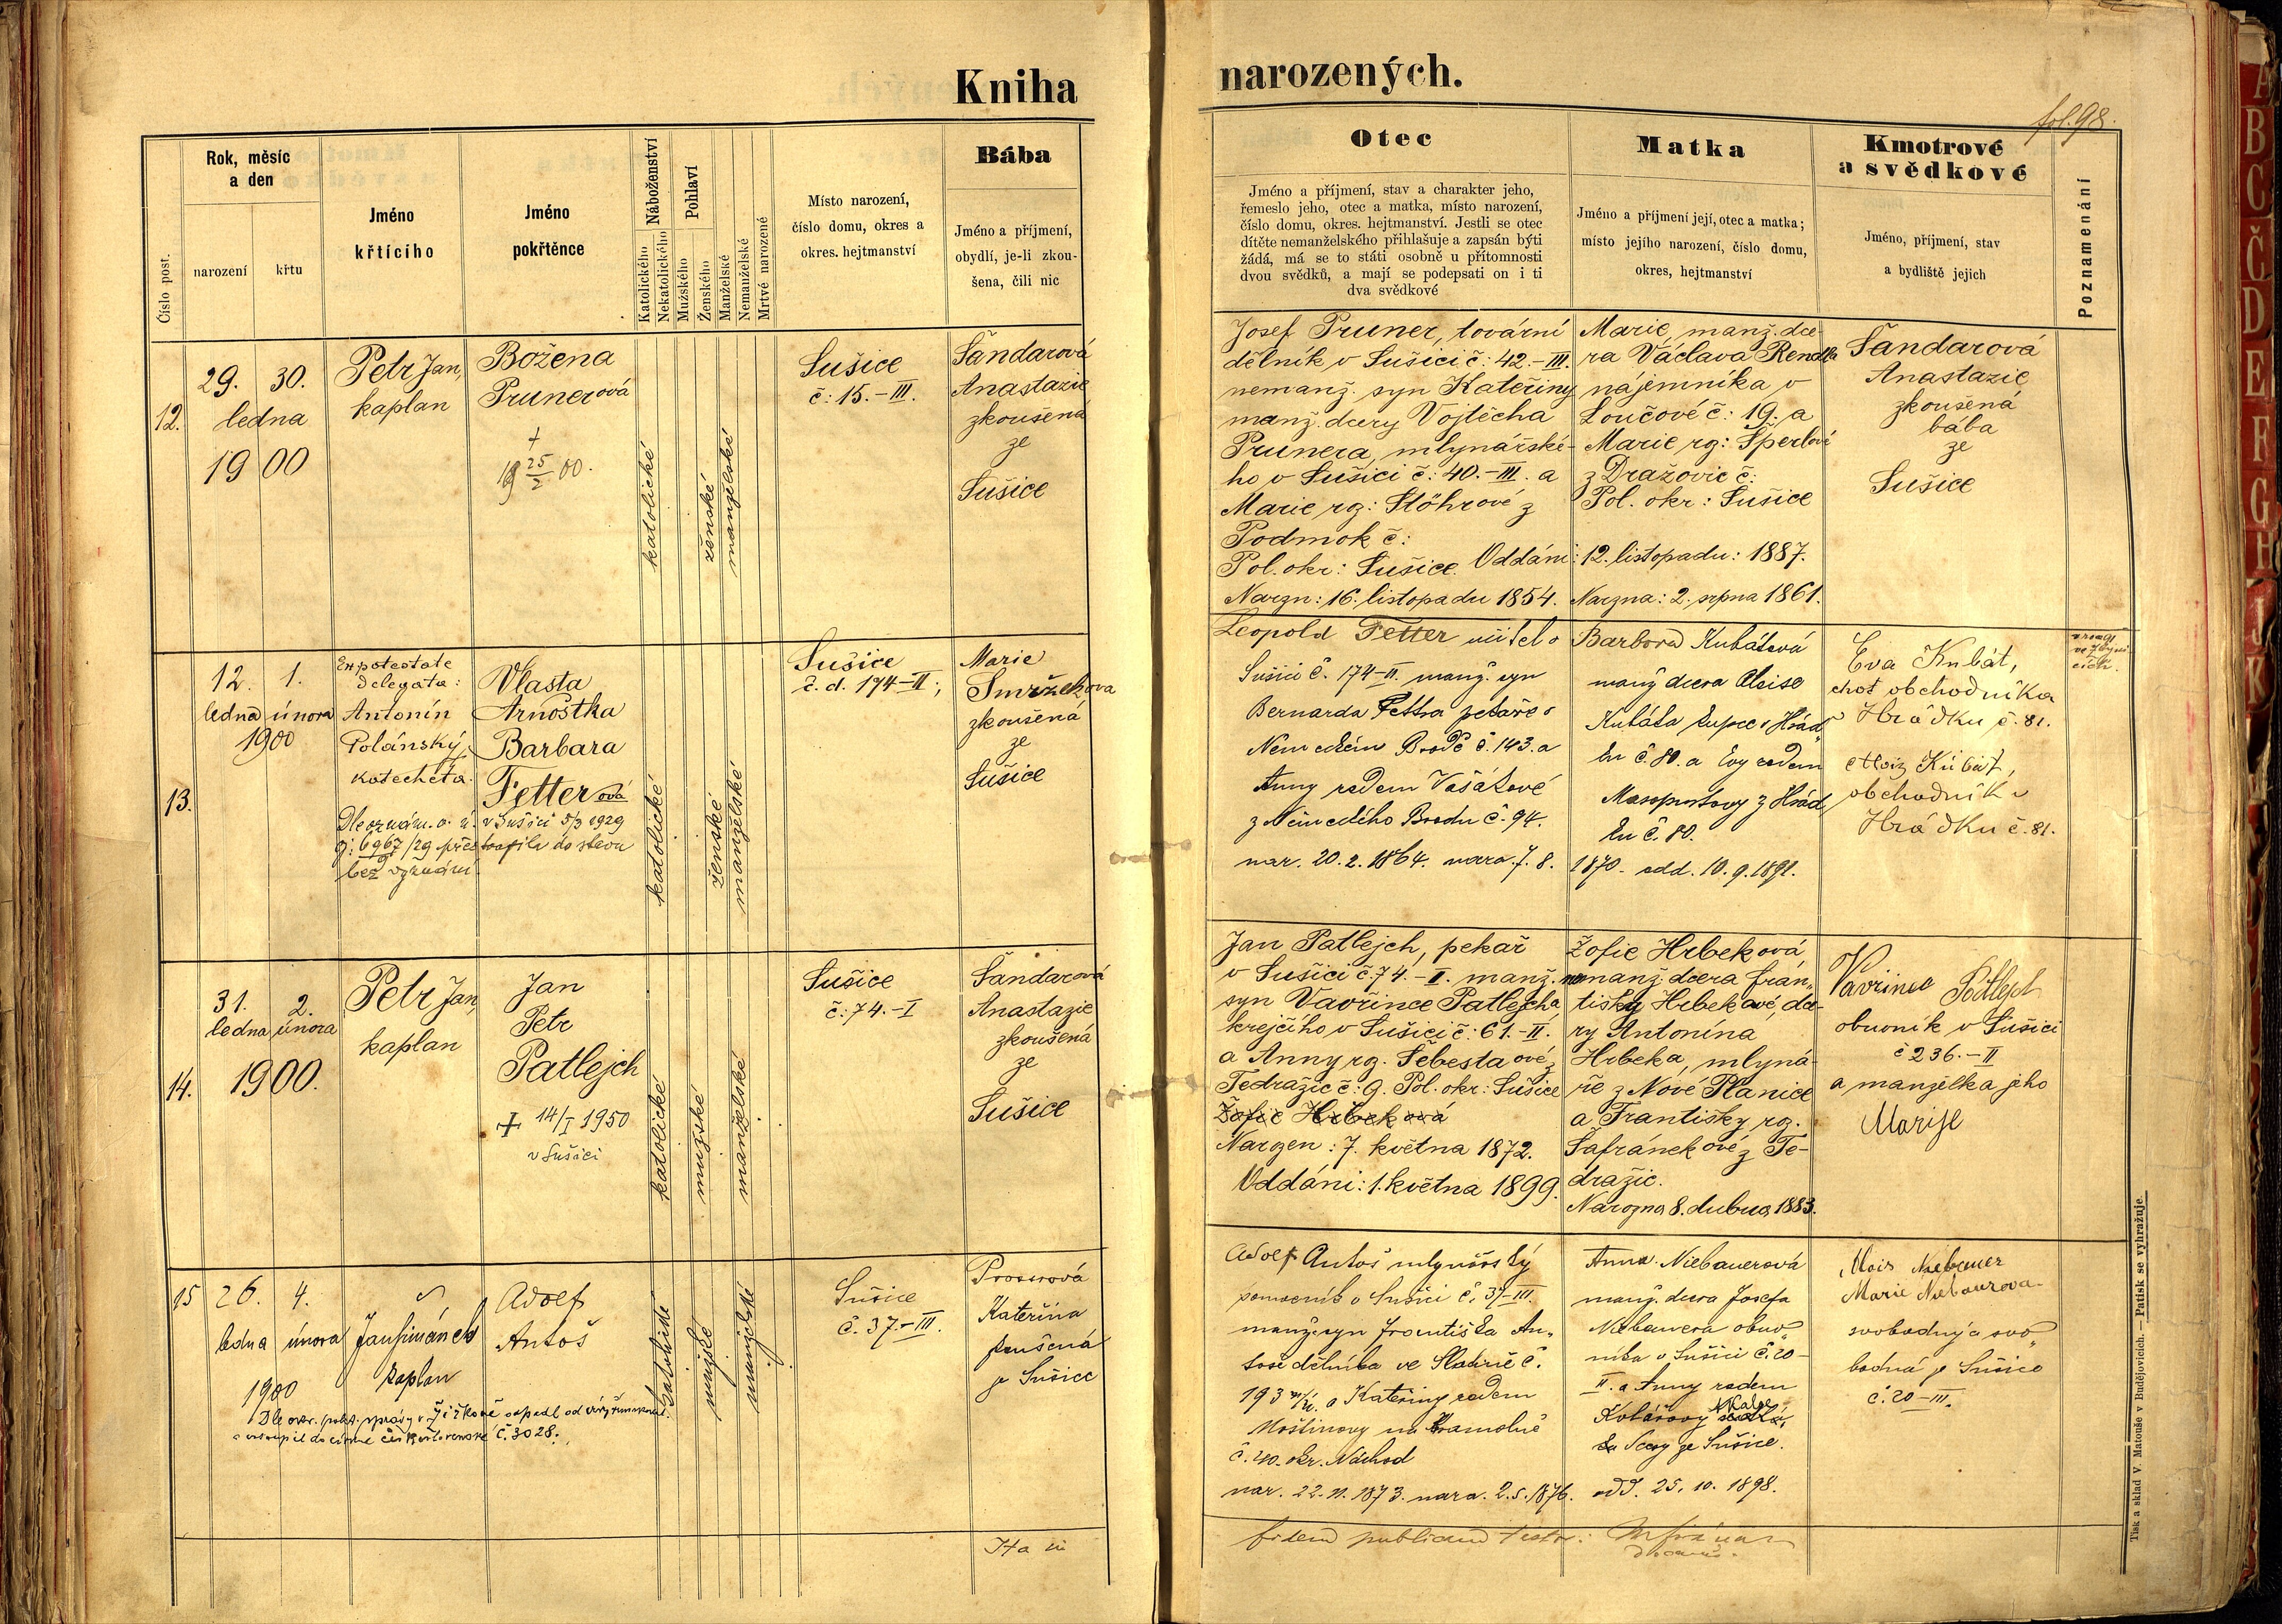 Kniha
narozených.
fol. 98.
Číslo post.
Rok, měsíc
a den
narození
křtu
Jméno
křtícího
Jméno
pokřtěnce
Náboženství
Katolického
Nekatolického
Pohlaví
Mužského
Ženského
Manželské
Nemanželské
Mrtvě narozené
Místo narození,
číslo domu, okres a
okres. hejtmanství
Bába
Jméno a příjmení,
obydlí, je-li zkou-
šena, čili nic
Otec
Jméno a příjmení, stav a charakter jeho,
řemeslo jeho, otec a matka, místo narození,
číslo domu, okres. hejtmanství. Jestli se otec
dítěte nemanželského přihlašuje a zapsán býti
žádá, má se to státi osobně u přítomnosti
dvou svědků, a mají se podepsati on i ti
dva svědkové
Matka
Jméno a příjmení její, otec a matka;
místo jejího narození, číslo domu,
okres, hejtmanství
Kmotrové
a svědkové
Jméno, příjmení, stav
a bydliště jejich
Poznamenání
12.
29. 30.
ledna
1900
Petr Jan,
kaplan
Božena
Prunerová
+
25/2 00.
katolické
ženské
manželské
Sušice
č: 15.-III.
Šandarová
Anastazie
zkoušená
ze
Sušice
Josef Pruner, tovární
dělník v Sušici č: 42.-III.
nemanž. syn Kateřiny
manž. dcery Vojtěcha
Prunera, mlynářské-
ho v Sušici č: 40.-III. a
Marie rz: Stöhrové z
Podmok č:
Pol. okr: Sušice. Oddáni: 12. listopadu: 1887.
Narzn: 16. listopadu 1854.
Marie, manž. dce-
ra Václava Rendla
nájemníka v
Loučové č: 19. a
Marie rz: Šperlové
z Dražovic č:
Pol. okr: Sušice
Narzna: 2. srpna 1861.
Šandarová
Anastazie
zkoušená
bába
ze
Sušice
13.
12. 1.
ledna února
1900
Ex potestate
delegata:
Antonín
Polánský,
katecheta.
Vlasta
Arnoštka
Barbara
Fetterová
Dle oznám. o. ú. v Sušici 5/3 1929
č: 6967/29 přestoupila do stavu
bez vyznání.
katolické
ženské
manželské
Sušice
č. d. 174-II;
Marie
zkoušená
ze
Sušice
Leopold Fetter učitel v
Sušici č. 174-II. manž. syn
Bernarda Fettra pekaře v
Německém Brodě č. 143. a
Anny rodem Vašátové
z Německého Brodu č. 94.
nar. 20. 2. 1864. nara. 7. 8. 1870. odd. 10. 9. 1891.
Barbora Kubátová
manž dcera Aloise
Kubáta kupce v Hrád-
ku č. 80. a Evy rodem
Masopustovy z Hrád-
ku č. 80.
Eva Kubát,
choť obchodníka
Hrádku č. 81.
Alois Kubát,
obchodník v
Hrádku č. 81.
14.
31. 2.
ledna února
1900.
Petr Jan,
kaplan
Jan
Petr
Patlejch
+ 14/I 1950
v Sušici
katolické
mužské
manželské
Sušice
č: 74.-I
Šandarová
Anastazie
zkoušená
ze
Sušice
Jan Patlejch, pekař
v Sušici č: 74.-I. manž.
syn Vavřince Patlejcha,
krejčího v Sušici č: 61.-II.
a Anny rz. Šebestaové z
Tedražic č: 9. Pol. okr: Sušice
Žofie Hrbeková
Narzen: 7. května 1872.
Oddáni: 1. května 1899.
Žofie Hrbeková,
nemanž. dcera Fran-
tišky Hrbekové, dce-
ry Antonína
Hrbeka, mlyná-
ře z Nové Plánice
a Františky rz.
Šafránekové z Te-
dražic.
Narozna 8. dubna 1883.
Vavřinec Patlejch
obuvník v Sušici
č 236.-II
a manželka jeho
Marije
15
26. 4.
ledna února
1900
Jan Šimánek
kaplan
Adolf
Antoš
Dle okr. polit. správy v Žižkově odpadl od církve římskokat.
a vstoupil do církve československé č. 3028.
katolické
mužské
manželské
Sušice
č. 37.-III.
Kateřina
zkoušená
ze Sušice
Adolf Antoš mlynářský
pomocník v Sušici č. 37-III.
manž. syn Františka An-
toše dělníka ve Slatině č.
193 a Kateřiny rodem
č. 40. okr. Náchod
nar. 22. 11. 1873. nara. 2. 5. 1876. odd. 25. 10. 1898.
Anna Niebauerová
manž. dcera Josefa
Niebauera obuv-
níka v Sušici č. 20-
II. a Anny rodem
Kolářovy
ze Sušice.
Alois Niebauer
Marie Niebaurova
svobodný a svo-
bodná z Sušice
č. 20-III.
fidem publicam testor:
Tisk a sklad V. Matouše v Budějovicích. — Patisk se vyhražuje.